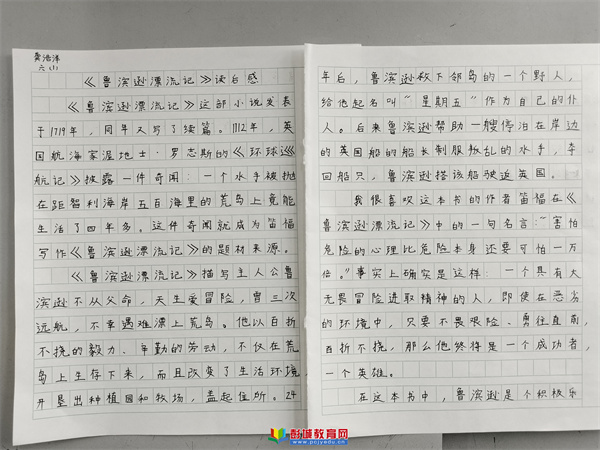 黄浩洋
六(1)
《鲁滨逊漂流记》读后感
《鲁滨逊漂流记》这部小说发表
于1719年，同年又写了续篇。1712年，英
国航海家渥地士·罗志斯的《环球巡
航记》披露一件奇闻：一个水手被抛
在距智利海岸五百海里的荒岛上竟能
生活了四年多。这件奇闻就成为笛福
写作《鲁滨逊漂流记》的题材来源。
《鲁滨逊漂流记》描写主人公鲁
滨逊不从父命，天生爱冒险，曾三次
远航，不幸遇难漂上荒岛。他以百折
不挠的毅力、辛勤的劳动，不仅在荒
岛上生存下来，而且改变了生活环境
开垦出种植园和牧场，盖起住所。24
年后，鲁滨逊救下邻岛的一个野人，
给他起名叫“星期五”作为自己的仆
人。后来鲁滨逊帮助一艘停泊在岸边
的英国船的船长制服叛乱的水手，夺
回船只，鲁滨逊搭该船驶返英国。
我很喜欢这本书的作者笛福在《
鲁滨逊漂流记》中的一句名言：“害怕
危险的心理比危险本身还要可怕一万
倍。”事实上确实是这样：一个具有大
无畏冒险进取精神的人，即使在恶劣
的环境中，只要不畏艰险、勇往直前，
百折不挠，那么他终将是一个成功者，
一个英雄。
在这本书中，鲁滨逊是个积极乐
彭城教育网
www.pcjyedu.cn